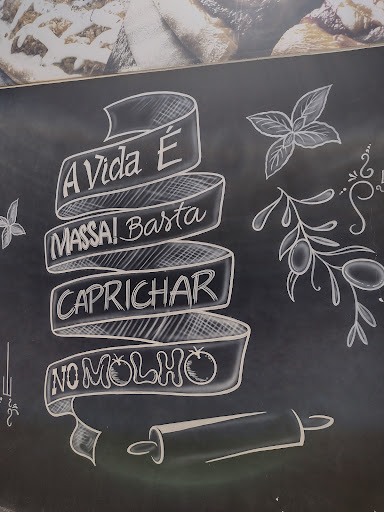 A Vida É
MASSA! Basta
CAPRICHAR
NO MOLHO